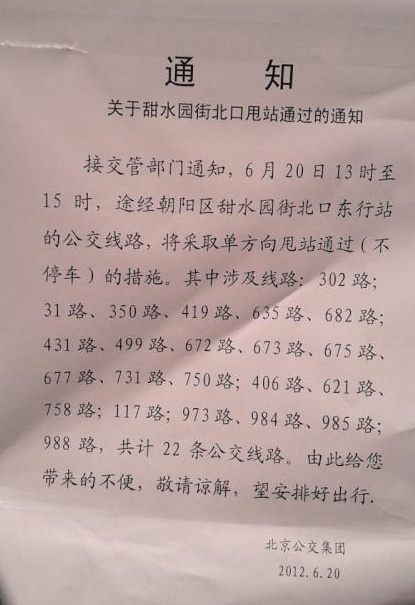 通 知
关于甜水园街北口甩站通过的通知
接交管部门通知，6月20日13时至
15 时，途经朝阳区甜水园街北口东行站
的公交线路，将采取单方向甩站通过（不
停车）的措施。其中涉及线路：302路；
31路、350路、419路、635路、682路；
431路、499路、672路、673路、675路、
677路、731路、750路；406路、621路、
758路；117路；973路、984路、985路；
988路，共计22条公交线路。由此给您
带来的不便，敬请谅解，望安排好出行.
北京公交集团
2012.6.20